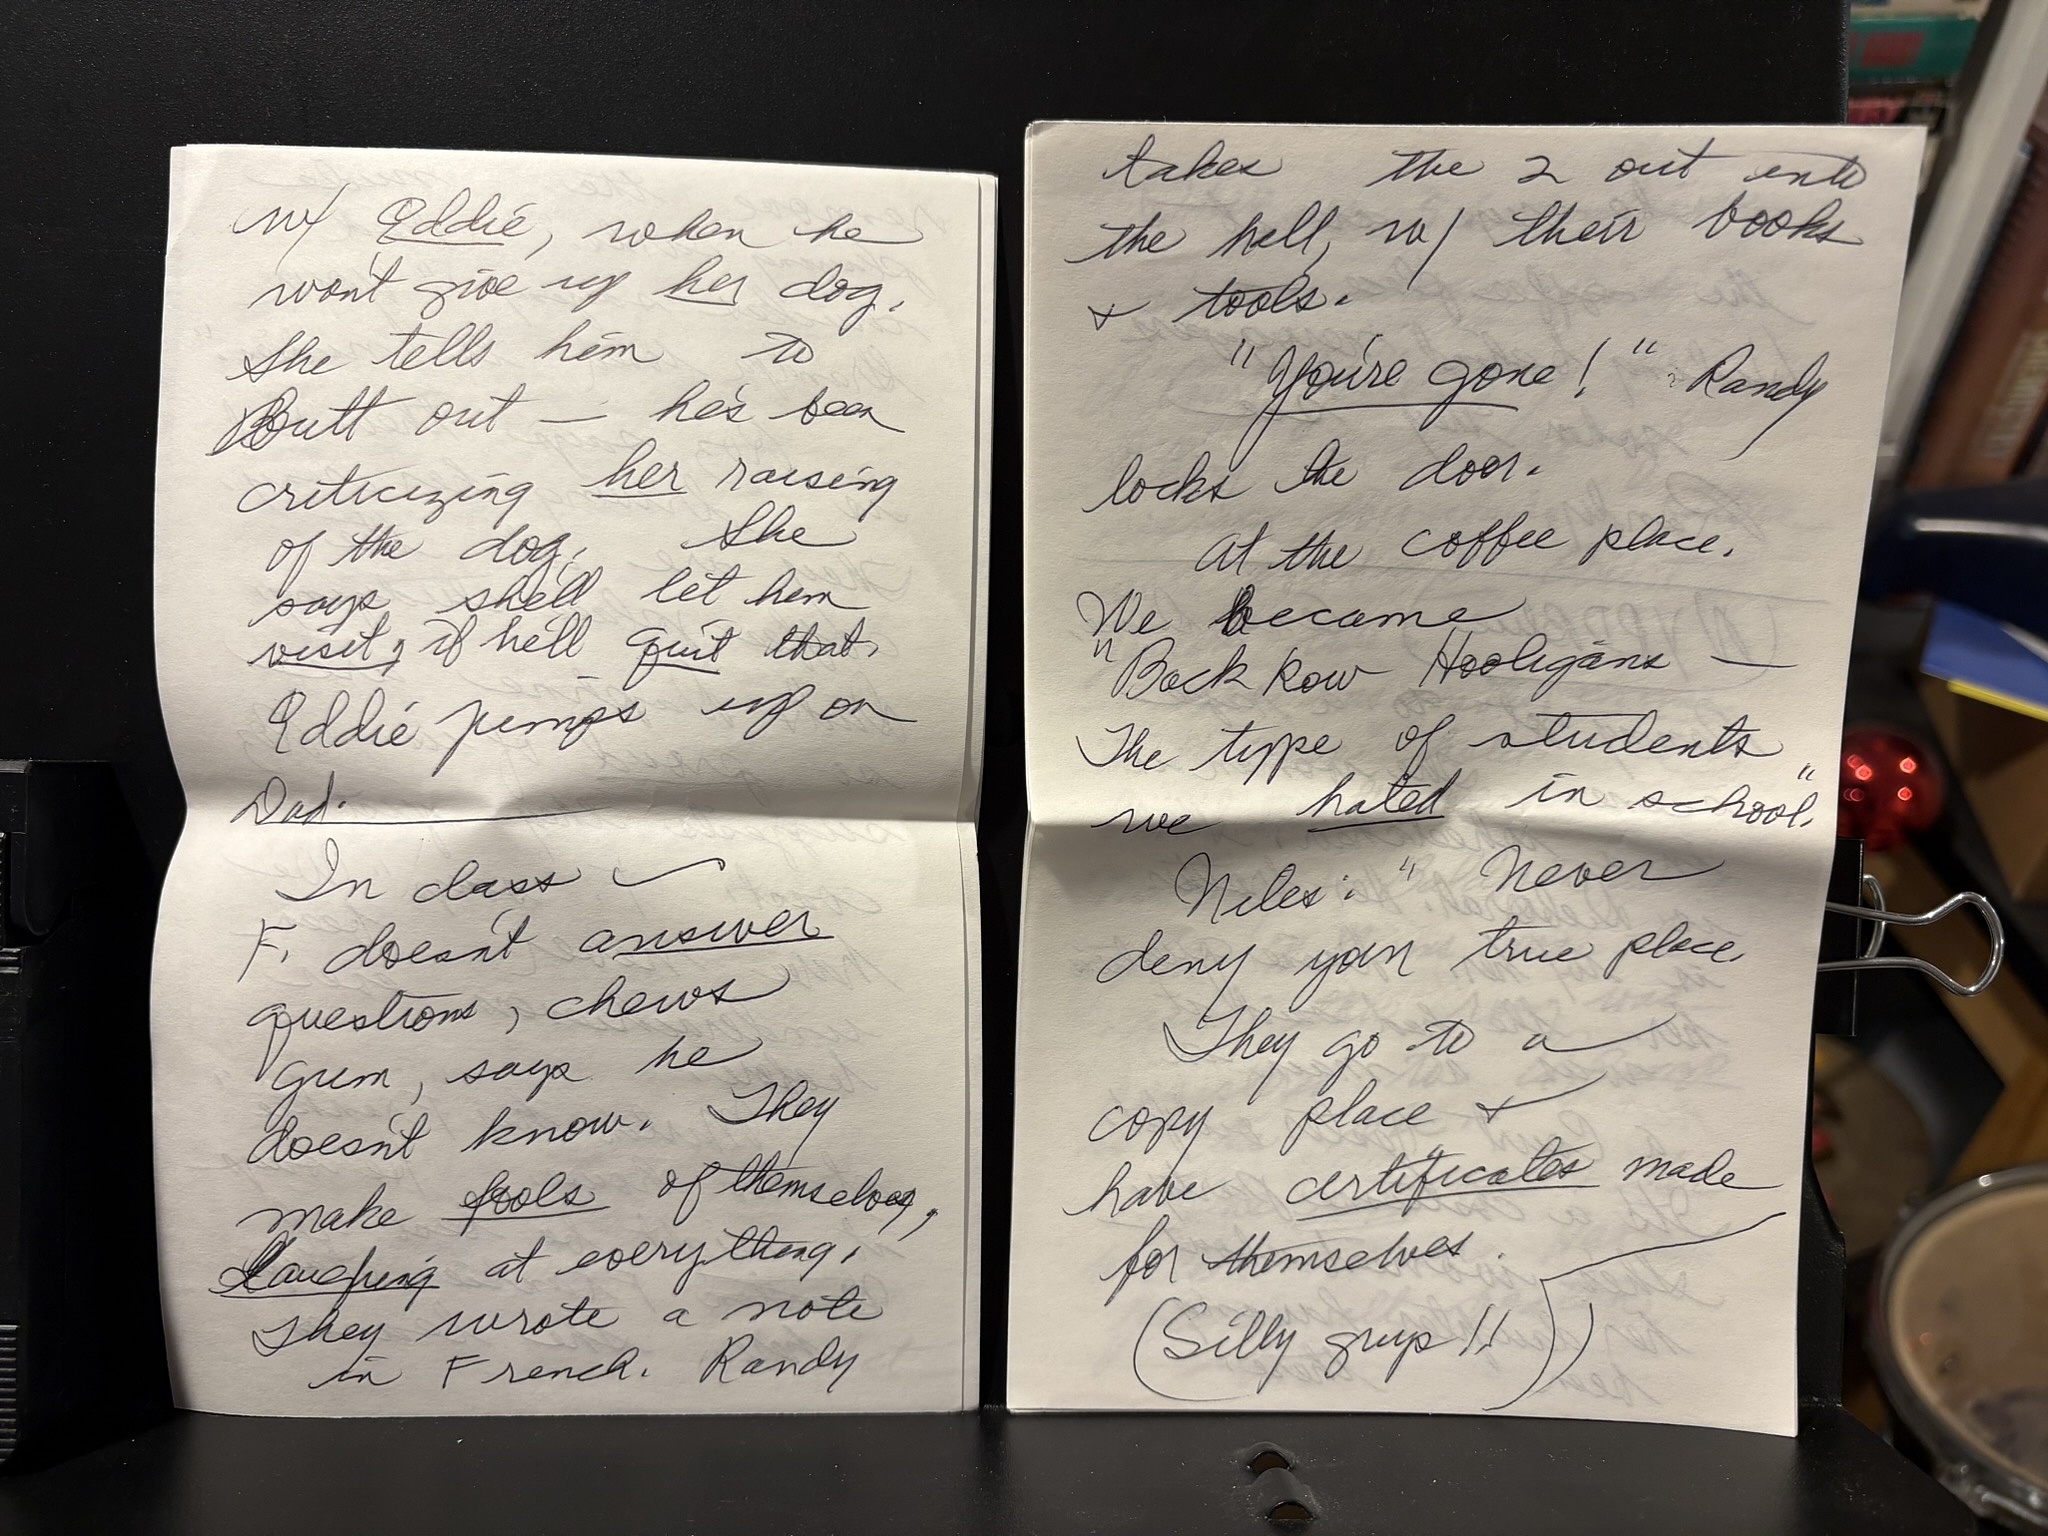 w/ Eddie, when he
won't give up her dog.
She tells him to
Butt out — he's been
criticizing her raising
of the dog. She
says she'll let him
visit, if he'll quit that.
Eddie jumps up on
Dad.
In class —
F. doesn't answer
questions, chews
gum, says he
doesn't know. They
make fools of themselves,
Laughing at everything.
They wrote a note
in French. Randy
takes the 2 out into
the hall, w/ their books
& tools.
"You're gone!" Randy
locks the door.
At the coffee place.
We became
"Back Row Hooligans —
The type of students
we hated in school."
Niles: "Never
deny your true place.
They go to a
copy place &
have certificates made
for themselves.
(Silly guys!!)